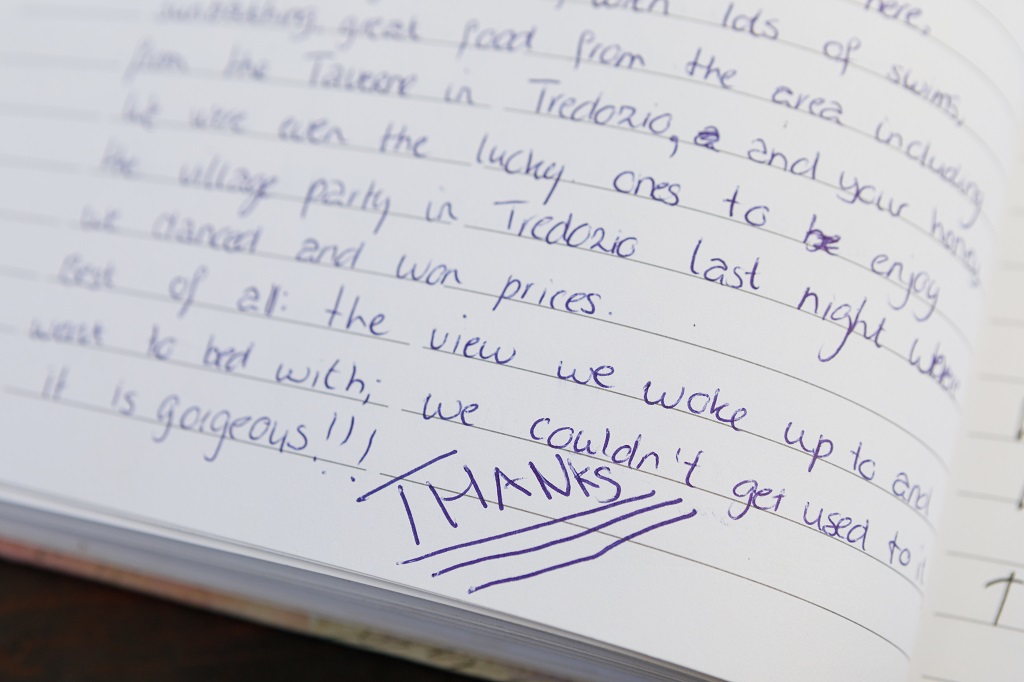 with lots of swims,
here,
great food from the area including
from the Taverne in Tredozio, and your honey
We were even the lucky ones to be enjoy
the village party in Tredozio last night were
we danced and won prices.
Best of all: the view we woke up to and
want to bed with; we couldn't get used to it
it is gorgeous!!!
THANKS